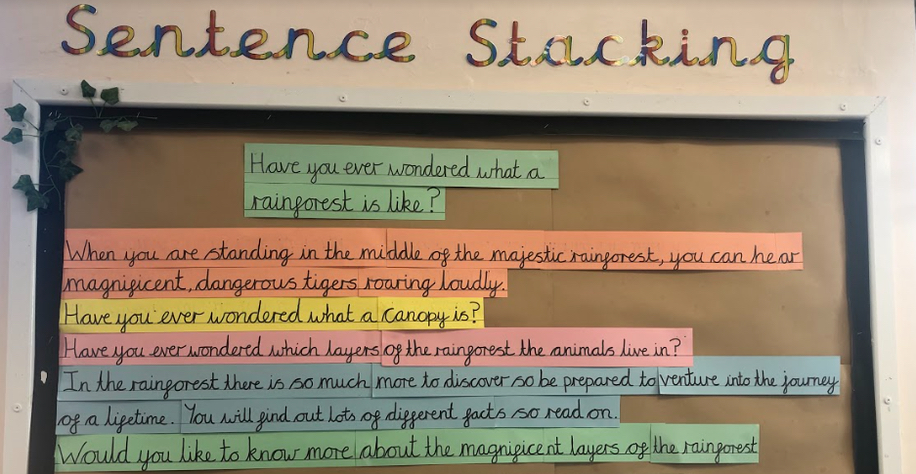 Sentence Stacking
Have you ever wondered what a
rainforest is like?
When you are standing in the middle of the majestic rainforest, you can hear
magnificent, dangerous tigers roaring loudly.
Have you ever wondered what a canopy is?
Have you ever wondered which layers of the rainforest the animals live in?
In the rainforest there is so much more to discover so be prepared to venture into the journey
of a lifetime. You will find out lots of different facts so read on.
Would you like to know more about the magnificent layers of the rainforest